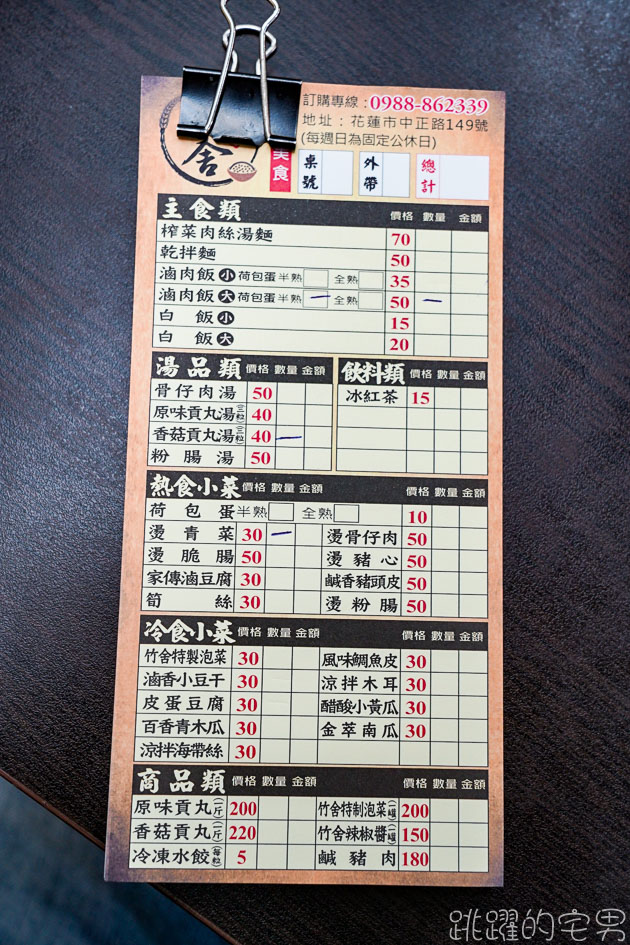 訂購專線：0988-862339
地址：花蓮市中正路149號
(每週日為固定公休日)
舍
美食 桌號 外帶 總計
主食類 價格 數量 金額
榨菜肉絲湯麵 70
乾拌麵 50
滷肉飯 小 荷包蛋 半熟 全熟 35
滷肉飯 大 荷包蛋 半熟 全熟 50
白飯 小 15
白飯 大 20
湯品類 價格 數量 金額
骨仔肉湯 50
原味貢丸湯(三粒) 40
香菇貢丸湯(三粒) 40
粉腸湯 50
飲料類 價格 數量 金額
冰紅茶 15
熱食小菜 價格 數量 金額 價格 數量 金額
荷包蛋 半熟 全熟 10
燙青菜 30 燙骨仔肉 50
燙脆腸 50 燙豬心 50
家傳滷豆腐 30 鹹香豬頭皮 50
筍絲 30 燙粉腸 50
冷食小菜 價格 數量 金額 價格 數量 金額
竹舍特製泡菜 30 風味鯛魚皮 30
滷香小豆干 30 涼拌木耳 30
皮蛋豆腐 30 醋酸小黃瓜 30
百香青木瓜 30 金萃南瓜 30
涼拌海帶絲 30
商品類 價格 數量 金額 價格 數量 金額
原味貢丸(一斤) 200 竹舍特制泡菜(一罐) 200
香菇貢丸(一斤) 220 竹舍辣椒醬(一罐) 150
冷凍水餃(每粒) 5 鹹豬肉 180
跳躍的宅男